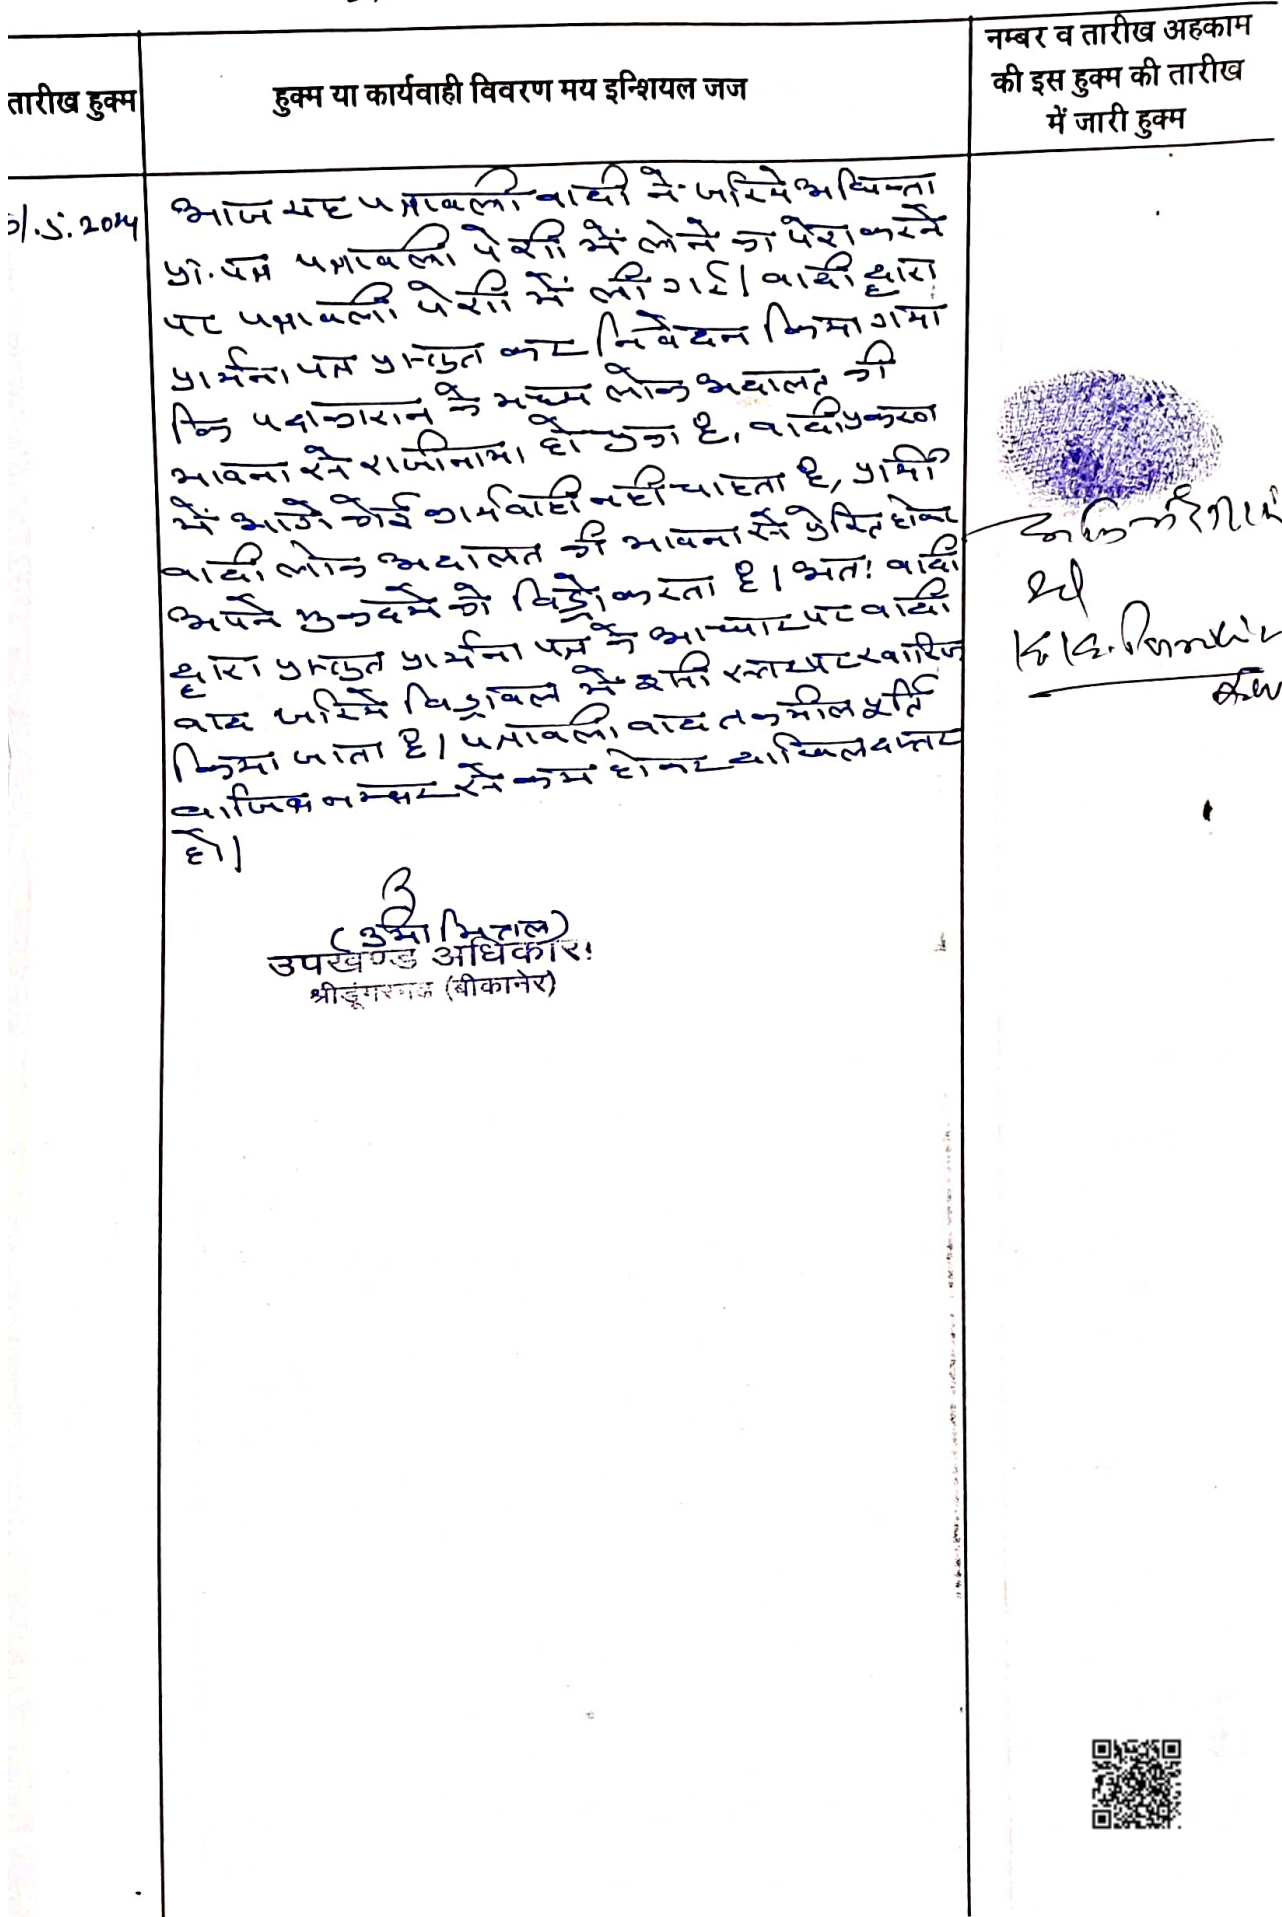 नम्बर व तारीख अहकाम
की इस हुक्म की तारीख
में जारी हुक्म
तारीख हुक्म
हुक्म या कार्यवाही विवरण मय इन्शियल जज
आज यह पत्रावली वादी ने जरिये अधिवक्ता
प्रा. पत्र पत्रावली पेशी में लेने का पेश करने
पर पत्रावली पेशी में ली गई। वादी द्वारा
प्रार्थना पत्र प्रस्तुत कर निवेदन किया गया
कि पक्षकारान के मध्य लोक अदालत की
भावना से राजीनामा हो चुका है, वादी प्रकरण
में आगे कोई कार्यवाही नहीं चाहता है, प्रार्थी
वादी लोक अदालत की भावना से प्रेरित होकर
अपने मुकदमे को विड्रो करता है। अतः वादी
द्वारा प्रस्तुत प्रार्थना पत्र के आधार पर वादी
वाद जरिये विड्रावल में इसी स्तर पर खारिज
किया जाता है। पत्रावली वाद तकमील पूर्ति
वाजिब नम्बर से कम होकर दाखिल दफ्तर
हो।
(उमा मित्तल)
उपखण्ड अधिकारी
श्रीडूंगरगढ (बीकानेर)